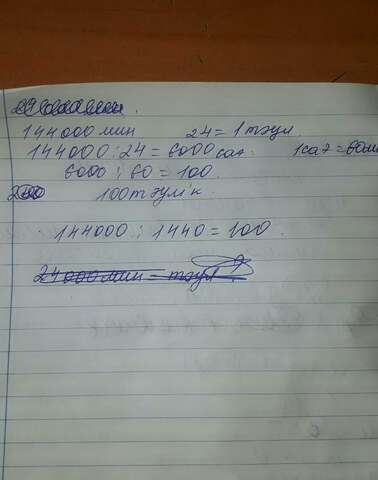 144000 мин 24 = 1 тәул
144000 : 24 = 6000 сағ. 1 сағ = 60 мин
6000 : 60 = 100
100 тәулік
144000 : 1440 = 100.
24000 мин = тәул